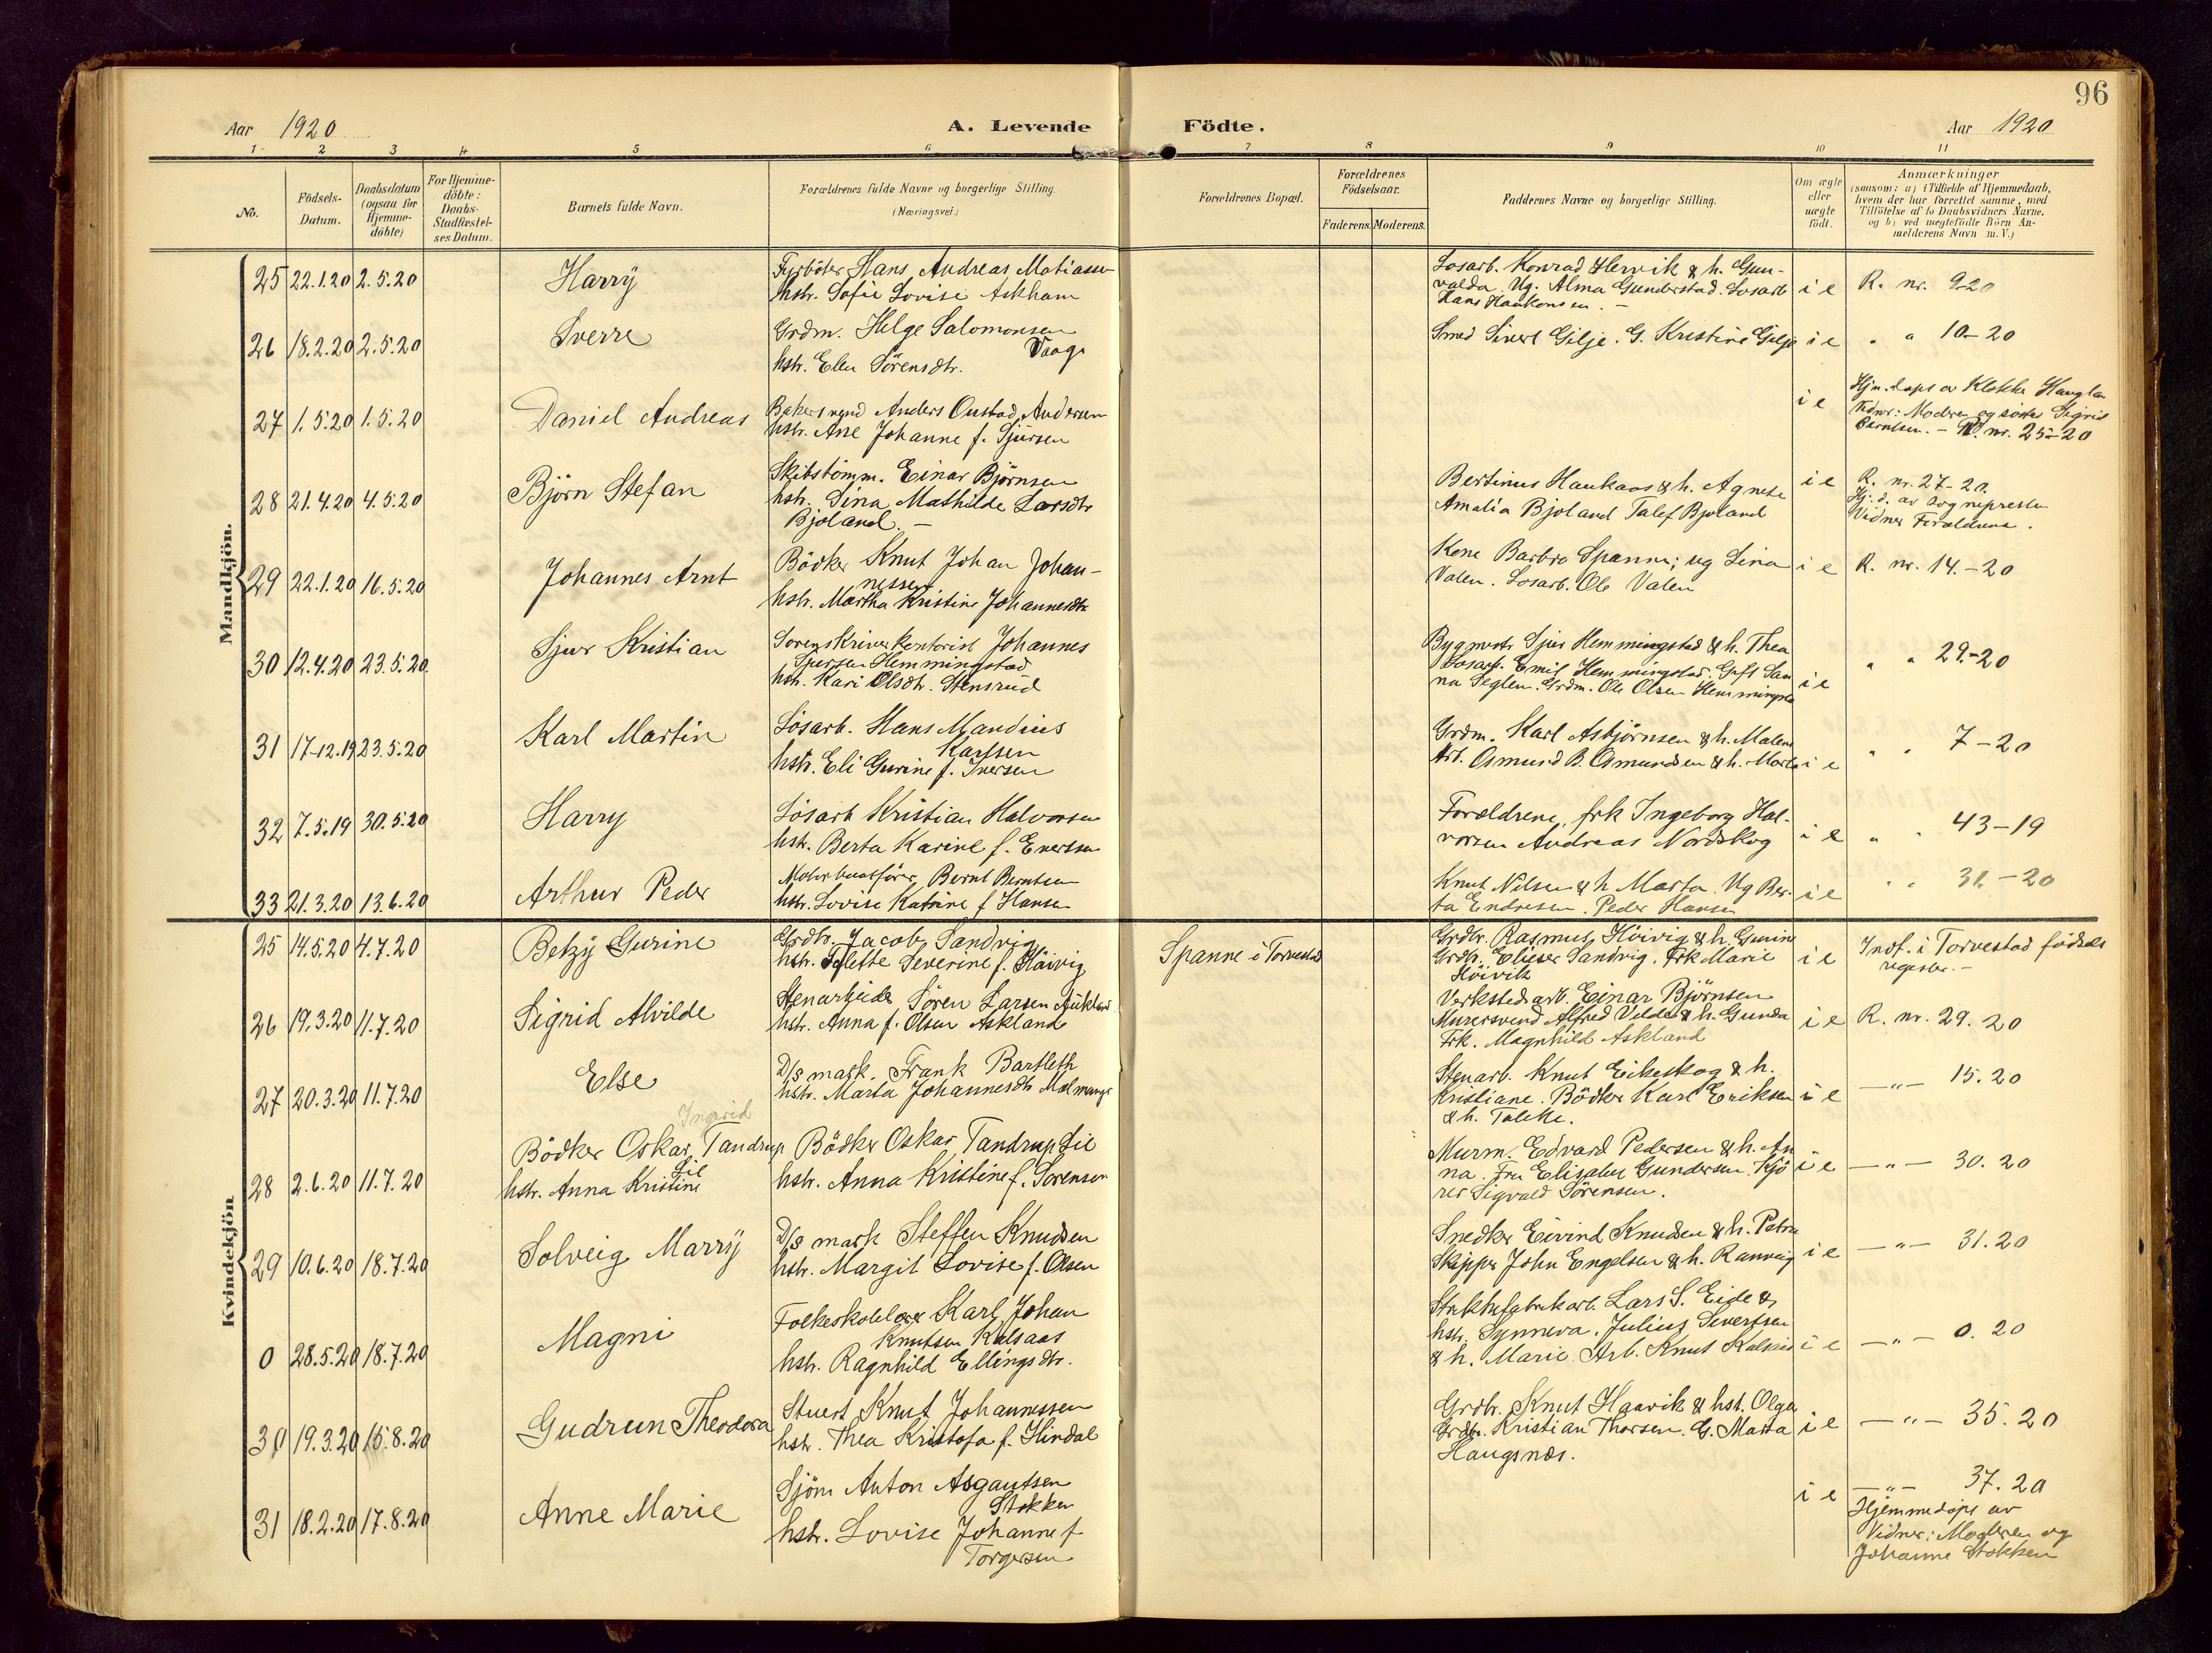 96
Aar 1920
A. Levende
Födte.
Aar 1920
1 2 3 4 5 6 7 8 9 10 11
No.
Födsels-
Datum.
Daabsdatum
(ogsaa for
Hjemme-
döbte)
For Hjemme-
döbte:
Daabs-
Stadfæstel-
ses Datum.
Barnets fulde Navn.
Forældrenes fulde Navne og borgerlige Stilling.
(Næringsvei.)
Forældrenes Bopæl.
Forældrenes
Födselsaar.
Faderens. Moderens.
Faddernes Navne og borgerlige Stilling.
Om ægte
eller
uægte
födt.
Anmærkninger
(saasom: a) i Tilfælde af Hjemmedaab,
hvem der har forrettet samme, med
Tilföielse af to Daabsvidners Navne.
og b) ved uægtefödte Börn An-
melderens Navn m. V.)
Mandkjön.
25 22.1.20 2.5.20 Harry
Fyrböter Hans Andreas Matiassen
hstr. Sofie Lovise Askham
Losarb. Konrad Hervik & h. Gun-
valda. Ug. Alma Gunderstad. Losarb
Hans Haakonsen. -
i e R. nr. 9-20
26 18.2.20 2.5.20 Sverre
Grdm. Helge Salomonsen
Vaage
hstr. Elen Sörensdtr.
Smed Sivert Gilje. G. Kristine Gilje
i e " " 10-20
27 1.5.20 1.5.20 Daniel Andreas
Bakersvend Anders Onstad Andersen
hstr. Ane Johanne f. Sjursen
i e
Hjm. daps av Klokker Hauglan
Vidner: Moderen og söster Sigrid
Berntsen. - R. nr. 25-20
28 21.4.20 4.5.20 Björn Stefan
Skibstömm. Einar Björnsen
hstr. Sina Mathilde Larsdtr
Bjoland. -
Bertinus Haukaas & h. Agnete
Amalia Bjoland Talef Bjoland
i e R. nr. 27-20.
Hj. d. av Sognepresten
Vidner Forældrene.
29 22.1.20 16.5.20 Johannes Arnt
Bödker Knut Johan Johan-
nessen
hstr. Martha Kristine Johannesdtr
Kone Barbro Spanne; ug Lina
Valen. Losarb. Ole Valen
i e R. nr. 14.-20
30 12.4.20 23.5.20 Sjur Kristian
Sorenskriverkontorist Johannes
Sjursen Hemmingstad
hstr. Kari Olsdtr. Stensrud
Bygmestr Sjur Hemmingstad & h. Thea
Losarb. Emil Hemmingstad. Gift San
na Seglem. Grdm. Ole Olsen Hemmingsta
i e " " 29-20
31 17-12.19 23.5.20 Karl Martin
Lösarb. Hans Mandius
Karlsen
hstr. Eli Gurine f. Iversen
Grdm. Karl Asbjörnsen & h. Malene
Arb. Osmund B. Osmundsen & h. Marta
i e " " 7-20
32 7.5.19 30.5.20 Harry
Lösarb Kristian Halvorsen
hstr. Berta Karine f. Evertsen
Forældrene, frk Ingeborg Hal-
vorsen Andreas Nordskog
i e " " 43-19
33 21.3.20 13.6.20 Arthur Peder
Motorbaatförer Bernt Berntsen
hstr. Lovise Katrine f Hansen
Knut Nilsen & h Marta. Ug Ber-
ta Endresen. Peder Hansen
i e " " 31-20
Kvindekjön
25 14.5.20 4.7.20 Betzy Gurine
Grdbr. Jacob Sandvig
hstr. Severine f. Höivig
Spanne i Torvestad
Grdbr. Rasmus Höivig & h. Gurine
Grdb. Elieser Sandvig. Frk Marie
Höivik
i e Indf. i Torvestad födsels
register. -
26 19.3.20 11.7.20 Sigrid Alvilde
Stenarbeider Sören Larsen Aukland
hstr. Anna f. Olsen Askland
Verkstedsarb. Einar Björnsen
Murersvend Alfred Velde & h. Gunda
Frk. Magnhild Askland
i e R. nr. 29. 20
27 20.3.20 11.7.20 Else
D/s mask. Frank Bartleth
hstr. Marta Johannesdtr Malmange
Stenarb. Knut Eikeskog & h.
Kristiane. Bödker Karl Eriksen
& h. Taleke.
i e -"- 15. 20
Ingrid
28 2.6.20 11.7.20 Bödker Oskar Tandrup
Lie
hstr. Anna Kristine
Bödker Oskar Tandrup Lie
hstr. Anna Kristine f. Sorensen
Murm. Edvard Pedersen & h. An
na. Fru Elisabet Gundersen. Kjö
rer Sigvald Sörensen.
i e -"- 30. 20
29 10.6.20 18.7.20 Solveig Marry
D/s mask Steffen Knudsen
hstr. Margit Lovise f. Olsen
Snedker Eivind Knudsen & h. Petra
Skipper John Engelsen & h. Ranveig
i e -"- 31. 20
0 28.5.20 18.7.20 Magni
Folkeskolelærer Karl Johan
Knutsen Kalsaas
hstr. Ragnhild Ellingsdtr.
Lars S. Eide &
hstr. Synneva. Julius Sivertsen
& h. Marie. Arb. Knut Kalsaas
i e -"- 0. 20
30 19.3.20 15.8.20 Gudrun Theodora
Stuert Knut Johannessen
hstr. Thea Kristofa f. Hindal
Grdbr. Knut Haavik & hst. Olga
Grdbr. Kristian Thorsen. G. Marta
Haugsnæs.
i e -"- 35. 20
31 18.2.20 17.8.20 Anne Marie
Sjöm Anton Asgautsen
Stokken
hstr. Lovise Johanne f
Torgersen
i e -"- 37. 20
Hjemmedöpt av
Vidner: Moderen og
Johanne Stokken